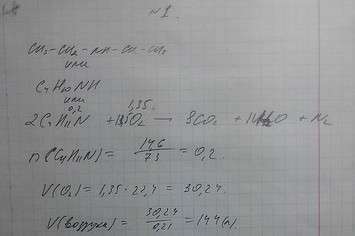 №1.
CH3-CH2-NH-CH2-CH3
или
C4H10NH
или
0,2 1,35.
2C4H11N + O2 → 8CO2 + 11H2O + N2
n(C4H11N) = 14,6/73 = 0,2.
V(O2) = 1,35 · 22,4 = 30,24.
V(воздуха) = 30,24/0,21 = 144(л).